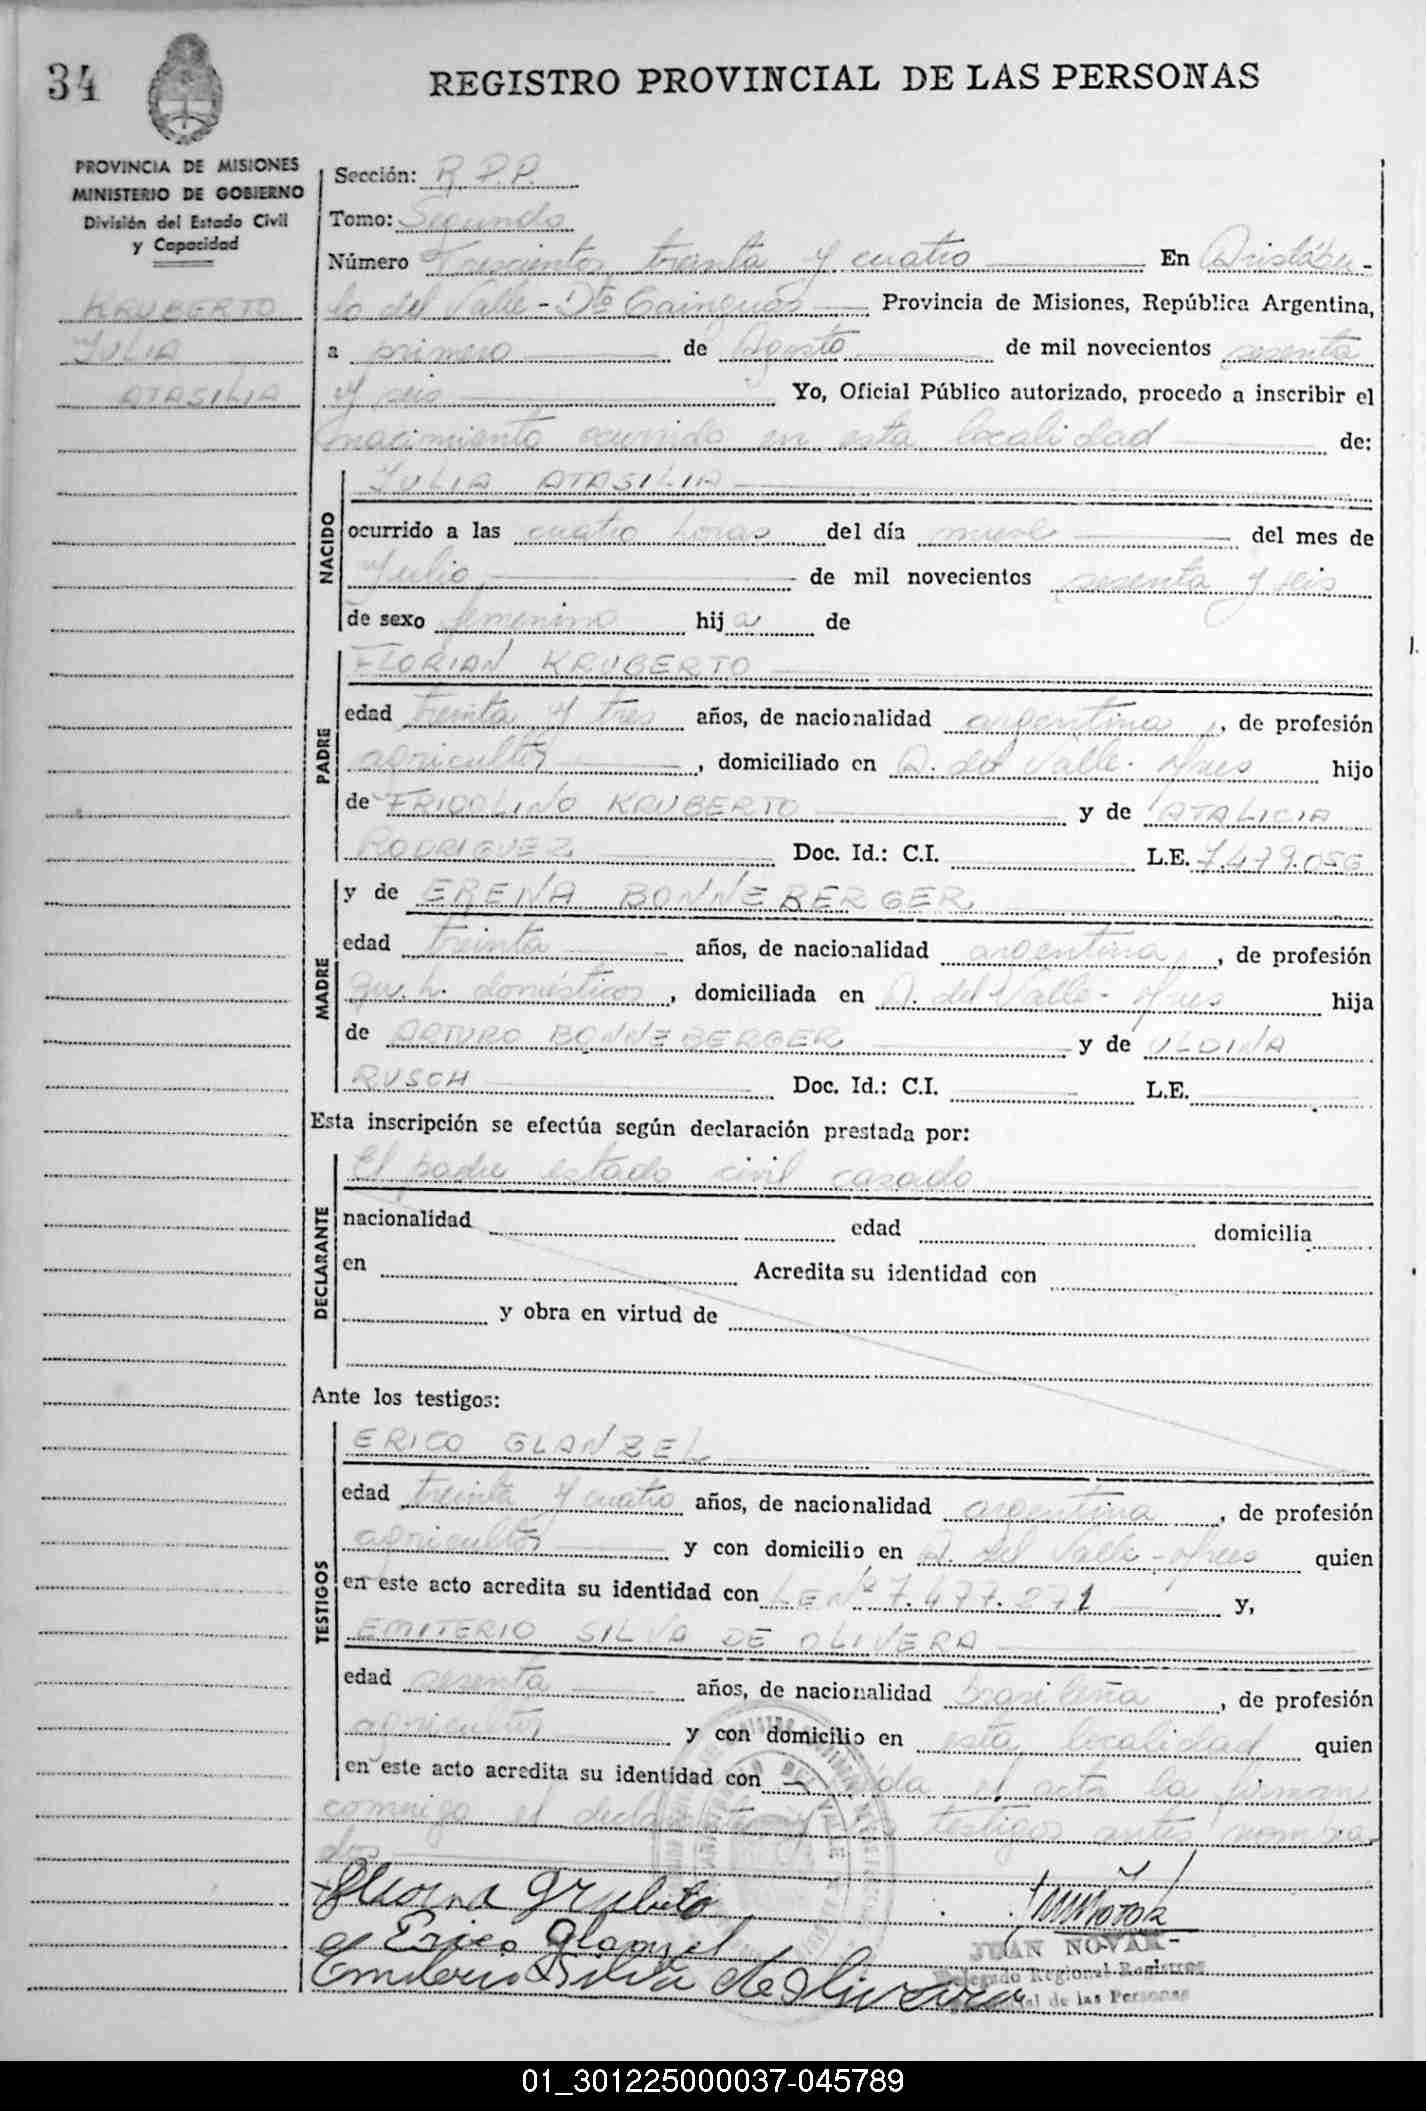 34
REGISTRO PROVINCIAL DE LAS PERSONAS
PROVINCIA DE MISIONES
MINISTERIO DE GOBIERNO
División del Estado Civil
y Capacidad
KRUBERTO
JULIA
ATASILIA
Sección: R.P.P.
Tomo: Segundo
Número Trescientos treinta y cuatro En Aristóbu-
lo del Valle - Dto Cainguás Provincia de Misiones, República Argentina,
a primero de Agosto de mil novecientos sesenta
y seis Yo, Oficial Público autorizado, procedo a inscribir el
nacimiento ocurrido en esta localidad de:
NACIDO
JULIA ATASILIA
ocurrido a las cuatro horas del día nueve del mes de
Julio de mil novecientos sesenta y seis
de sexo femenino hija de
PADRE
FLORIAN KRUBERTO
edad treinta y tres años, de nacionalidad argentina, de profesión
agricultor, domiciliado en A. del Valle - Mnes hijo
de FRIDOLINO KRUBERTO y de ATALICIA
RODRIGUEZ Doc. Id.: C.I. L.E. 7.479.056
MADRE
y de ERENA BONNEBERGER
edad treinta años, de nacionalidad argentina, de profesión
qu. h. domésticos, domiciliada en A. del Valle - Mnes hija
de ARTURO BONNEBERGER y de ULDINA
RUSCH Doc. Id.: C.I. L.E.
Esta inscripción se efectúa según declaración prestada por:
DECLARANTE
El padre estado civil casado
nacionalidad edad domicilia
en Acredita su identidad con
y obra en virtud de
Ante los testigos:
TESTIGOS
ERICO GLANZEL
edad treinta y cuatro años, de nacionalidad argentina, de profesión
agricultor y con domicilio en A. del Valle - Mnes quien
en este acto acredita su identidad con L E Nº 7.477.271 y,
EMITERIO SILVA DE OLIVERA
edad sesenta años, de nacionalidad brasileña, de profesión
agricultor y con domicilio en esta localidad quien
en este acto acredita su identidad con - Leída el acta la firman
conmigo el declarante y testigos antes nombra-
dos
Erico Glanzel
Emiterio Silva de Olivera
JUAN NOVAK
Delegado Regional Registro
Provincial de las Personas
01_301225000037-045789